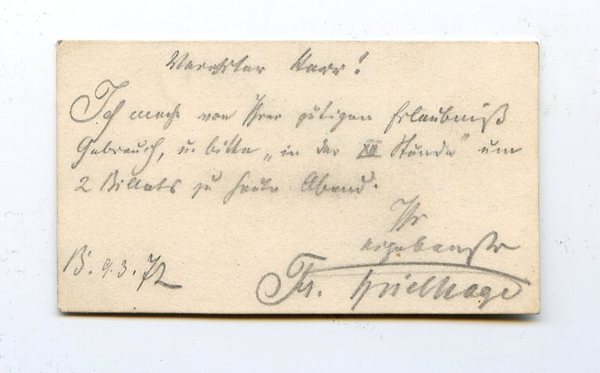 Verehrter Herr!
Ich mache von Ihrer gütigen Erlaubniß
Gebrauch, u. bitte „in der XII Stunde" um
2 Billets zu heute Abend.
Ihr
ergebenster
B. 9.3.72
Fr. Spielhagen